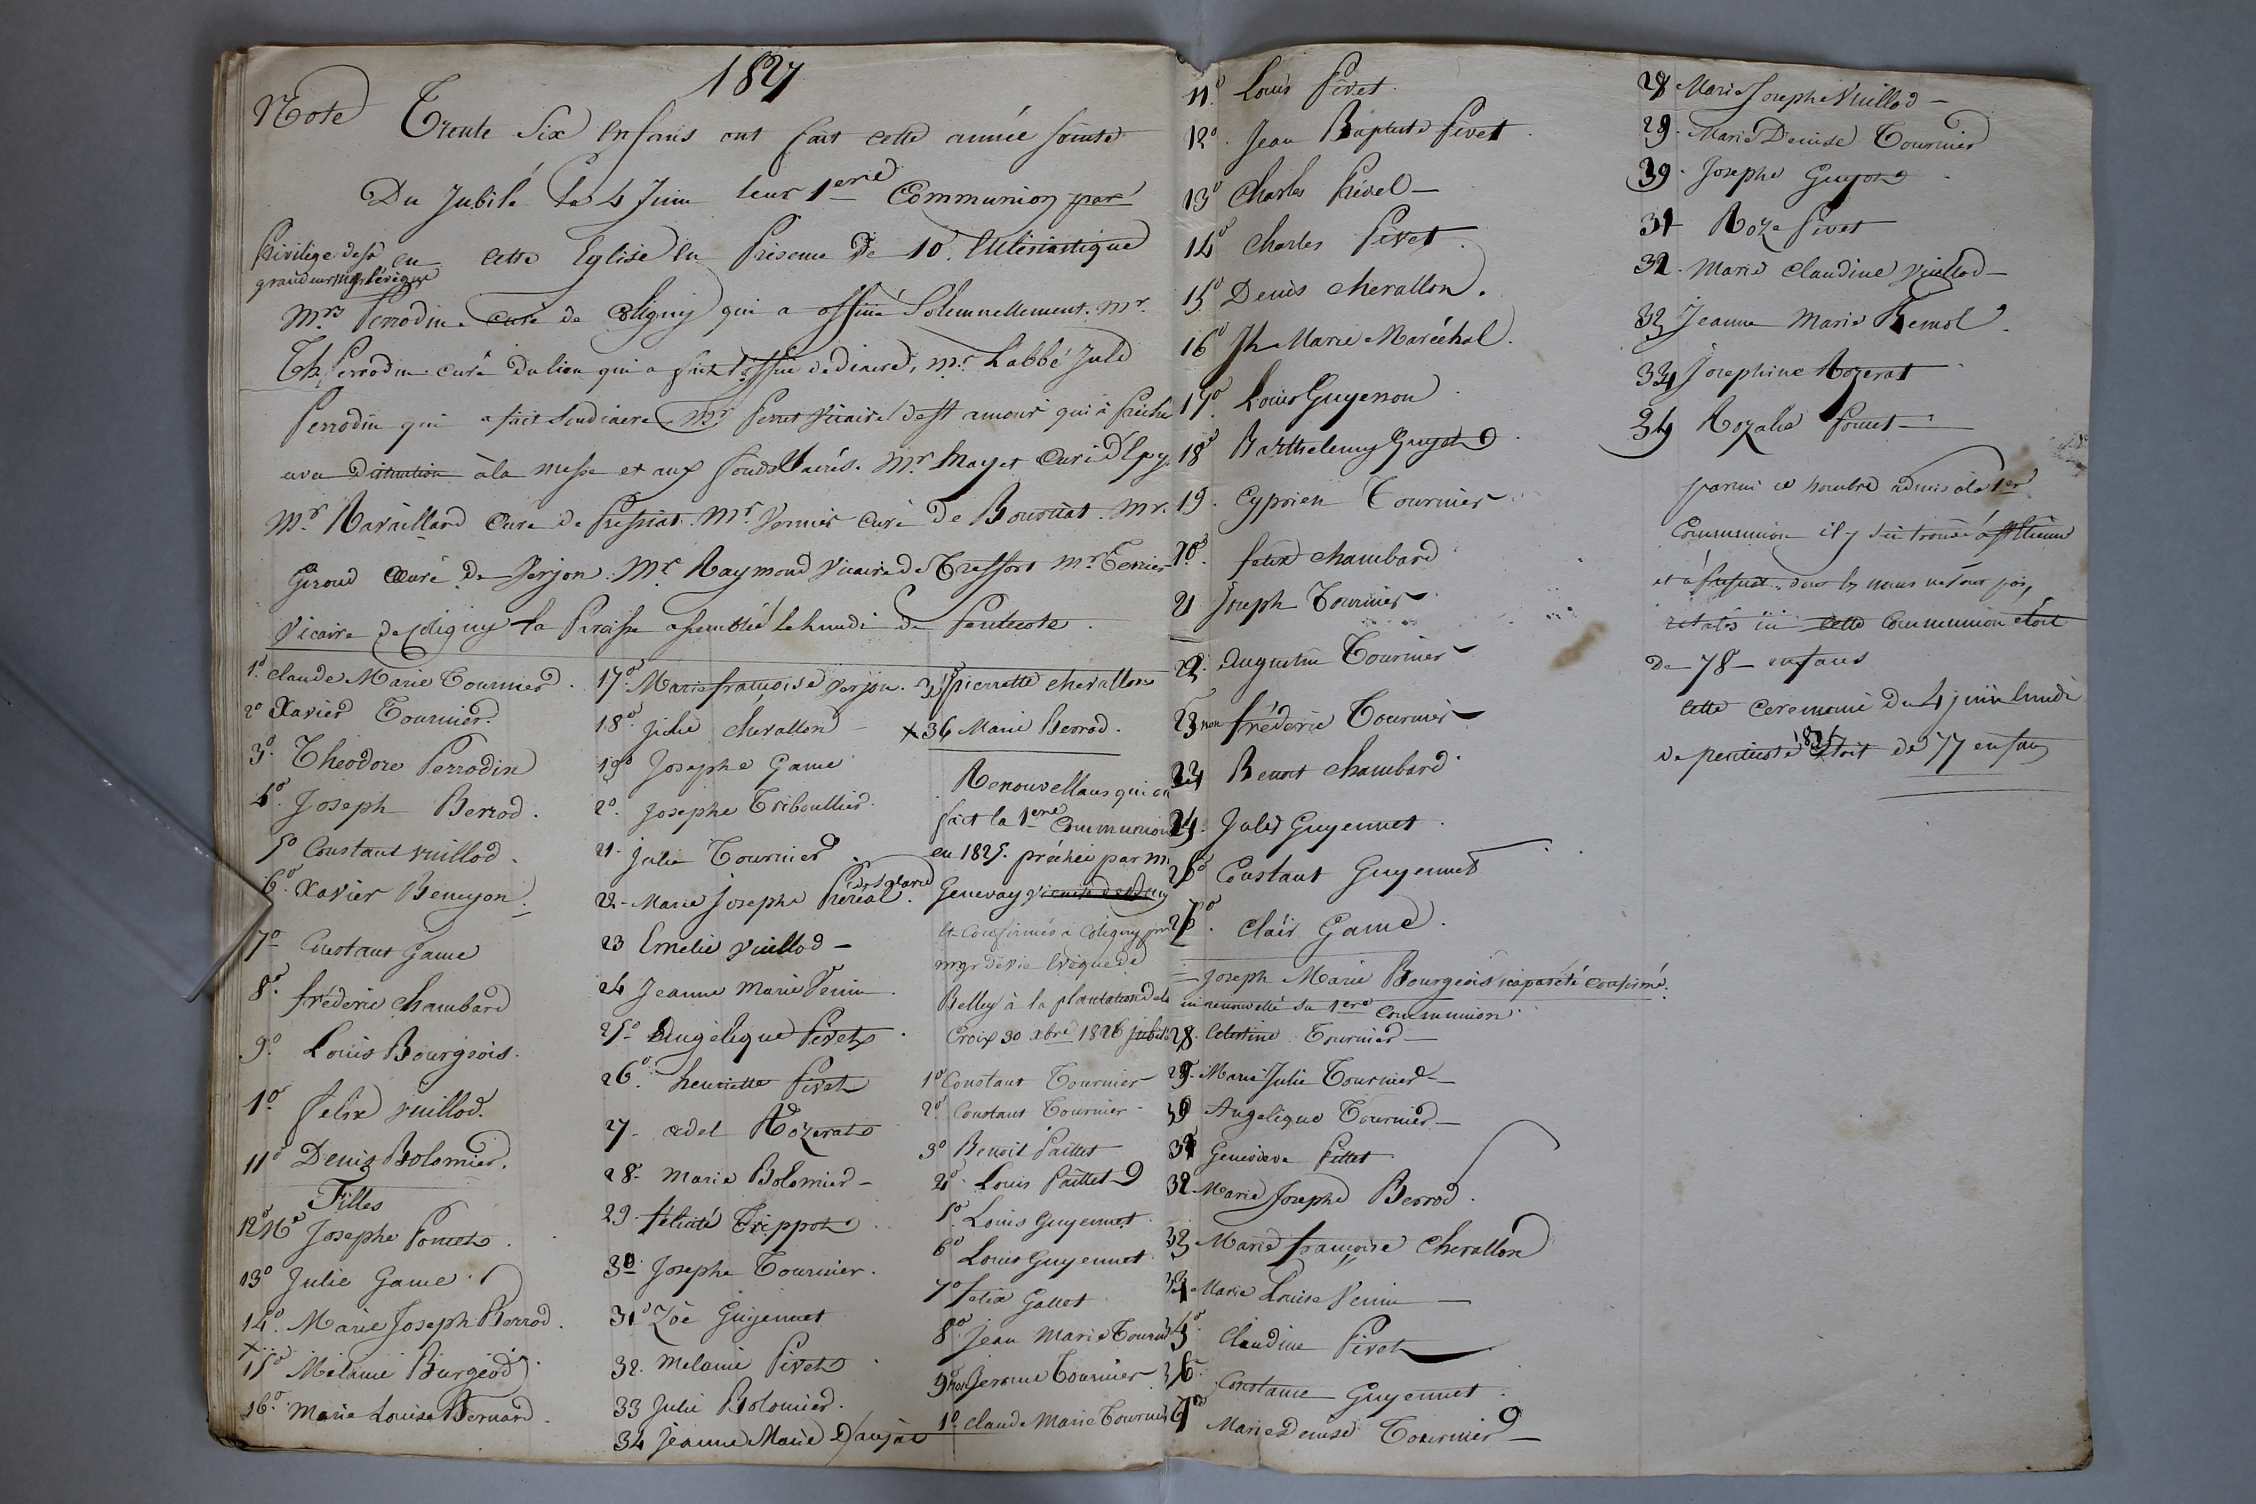 1827
Note Trente Six enfans ont fait cette année sainte
Du Jubilé le 4 Juin leur 1ere Communion par
Privilége de sa grandeur Mgr l'évêque
en cette Eglise en Présence de 10. Ecclésiastique
Mrs Perrodin curé de Coligny qui a officié Solemnellement. Mr.
Th. Perrodin curé du lieu qui a fait l'office de diacre, Mr. L'abbé Jule
Perrodin qui a fait soudiacre Mr Perret Vicaire de St amour qui à Prêché
avec distinction à la messe et aux fonds Sacrés. Mr. Mayet Curé d'Epy.
Mr. Ravaillard Curé de Pressiat. Mr. Vernier curé de Bourcia. Mr.
Giroud Curé de Verjon. Mr. Raymond Vicaire de Treffort Mr. Terrier
Vicaire de Coligny la Paroisse assemblée le lundi de Pentecote.
1° claude Marie Tournier.
2° Xavier Tournier.
3° Théodore Perrodin
4° Joseph Berrod.
5° Constant vuillod.
6° Xavier Benyon.
7° Constant Game
8° frédéric chambard
9° Louis Bourgeois.
1° felix vuillod.
11° Denis Bolomier.
Filles
12° Josephe Poncet.
13° Julie Game.
14° Marie Joseph Berrod.
x 15° Mélanie Burgeod
16° Marie Louise Bernard.
17° Marie françoise Verjon.
18° Julie chevallon
19° Josephe Game
2° Josephe Triboullier.
21. Julie Tournier.
22. Marie Josephe
23 Emelie vuillod
24 Jeanne Marie Venin
25° Angélique Pivet.
26° henriette Pivet
27. adel Rozerat
28. Marie Bolomier
29. félicité Trippoz
30 Josephe Tournier.
31° Zoé Guyennet
32. Melanie Pivet
33 Julie Bolomier.
34 Jeanne Marie Danjan
35 pierrette chevallon
x 36 Marie Berrod.
Renouvellans qui on
fait la 1ere Communion
en 1825. prêchée par M
Genevay
et confirmés à Coligny par
mgr dévie Evêque de
Belley à la plantation de la
Croix 30 xbre 1826 jubilé
1° Constant Tournier
2° Constant Tournier
3° Benoit Paillet
4° Louis Paillet
5° Louis Guyennet
6° Louis Guyennet
7° felix Gallet
8° Jean Marie Tournier
9° non Jerome Tournier
1° Claude Marie Tournier
11° Louis Pivet.
12° Jean Baptiste Pivet
13° Charles Pivet
14° Charles Pivet.
15° Denis chevallon.
16° Jh Marie Maréchal.
17° Louis Guyenon
18° Barthelemy Guyot
19. Cyprien Tournier
20. felix chambard
21 Joseph Tournier
22. Augustin Tournier
23 non fréderic Tournier
23 Benoit Chambard.
24. Jules Guyennet.
25° Constant Guyennet
26°. clair Game.
Joseph Marie Bourgeois n'a pas été confirmé.
ni renouvellé sa 1ere Communion.
28. Celestine Tournier
29. Marie Julie Tournier
30 Angelique Tournier
31 Genevieve Pillet
32. Marie Josephe Berrod.
33 Marie françoise Chevallon
34 Marie Louise Venin
35 Claudine Pivet
36. Constance Guyennet.
27° Marie Denise Tournier
28 Marie Josephe Vuillod
29. Marie Denise Tournier
30. Josephe Guyot
31 Roze Pivet
32. Marie Claudine Vuillod
33 Jeanne Marie Remol.
34 Josephine Rozerat
34 Rozalie Poncet
parmi ce nombre admis à la 1er
Communion il y s'en trouve à St Etienne
et à Pressiat. dont les noms ne sont pas
relatés ici cette communion étoit
de 78 enfans
cette ceremonie du 4 juin lundi
de pentecote 1827 étoit de 77 enfans